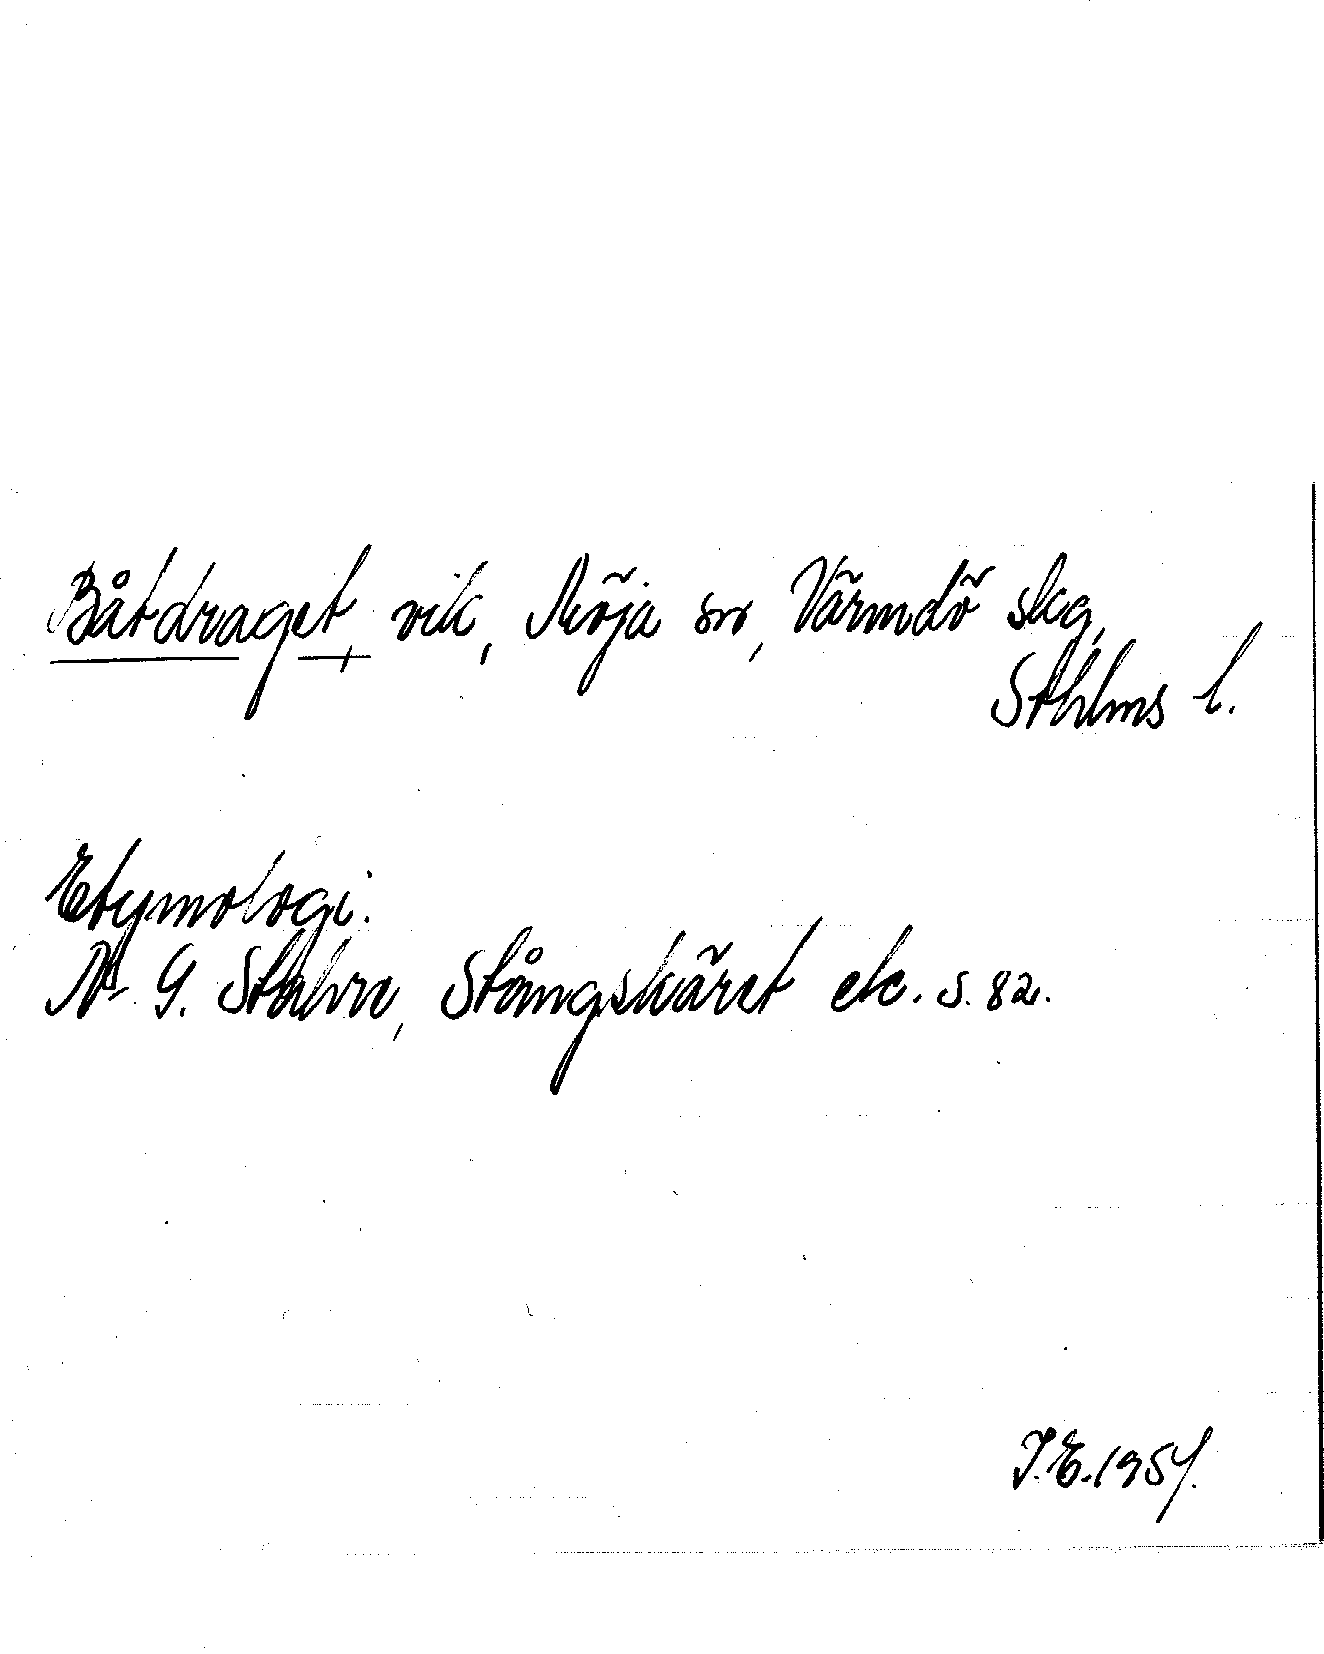 Båtdraget, vik, Möja sn, Värmdö skg,
Sthlms l.
Etymologi.
N-G. Stahre, Stångskäret etc. s. 82.
I.E. 1957.